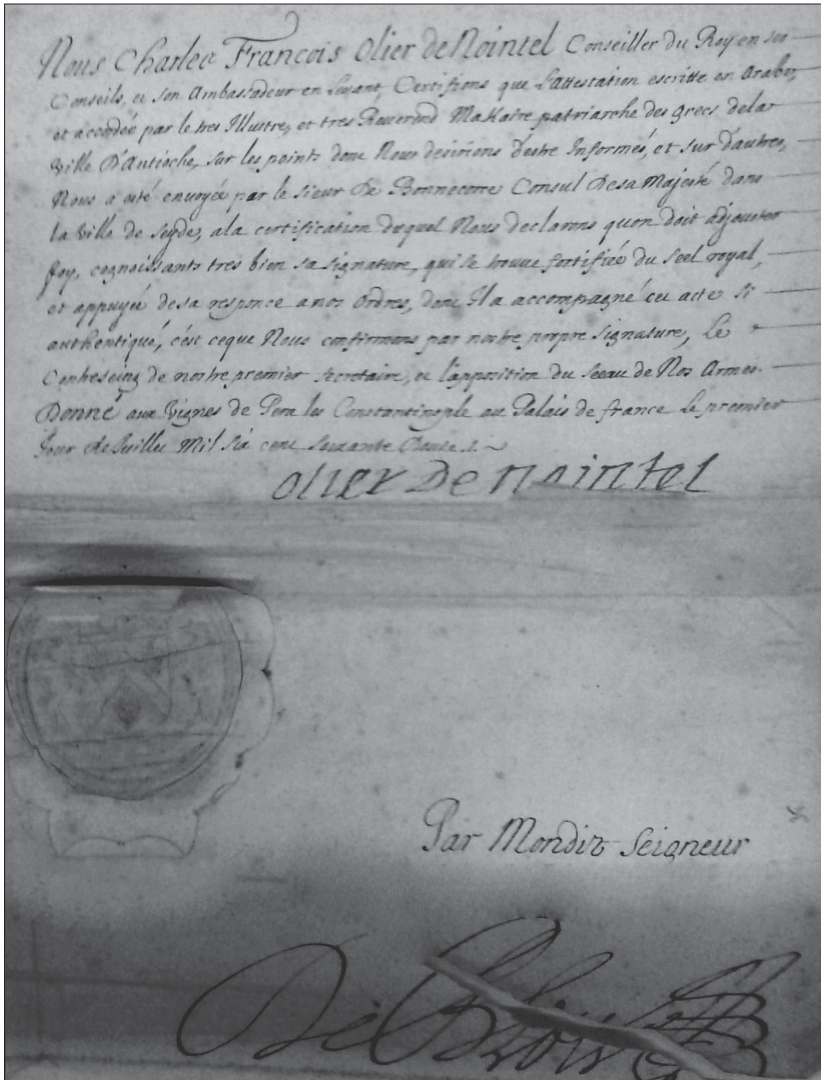 Nous Charles François Olier de Nointel Conseiller du Roy en ses
Conseils, et son Ambassadeur en Levant, Certifions que L'attestation escritte en Arabe,
et accordée par le tres Illustre, et tres Reverend Makaire patriarche des grecs de la
Ville D'Antioche, sur les points dont Nous desirions d'estre Informés, et sur d'autres,
Nous a esté envoyée par le Sieur De Bonnecorse Consul De sa Majesté dans
la Ville de Seyde, a la certification duquel Nous declarons qu'on doit adjouster
foy, cognoissants tres bien sa signature, qui se trouve fortifiée du seel royal,
et appuyée de sa responce a nos Ordres, dont Il a accompagné cet acte si
authentiqué, c'est ce que Nous confirmons par nostre propre signature, Le
Contreseing de nostre premier secretaire, et l'apposition du seeau de Nos Armes.
Donné aux Vignes de Pera les Constantinople au Palais de france Le premier
Jour de Juillet Mil six cent soixante Douze
Olier De Nointel
Par Mondit Seigneur